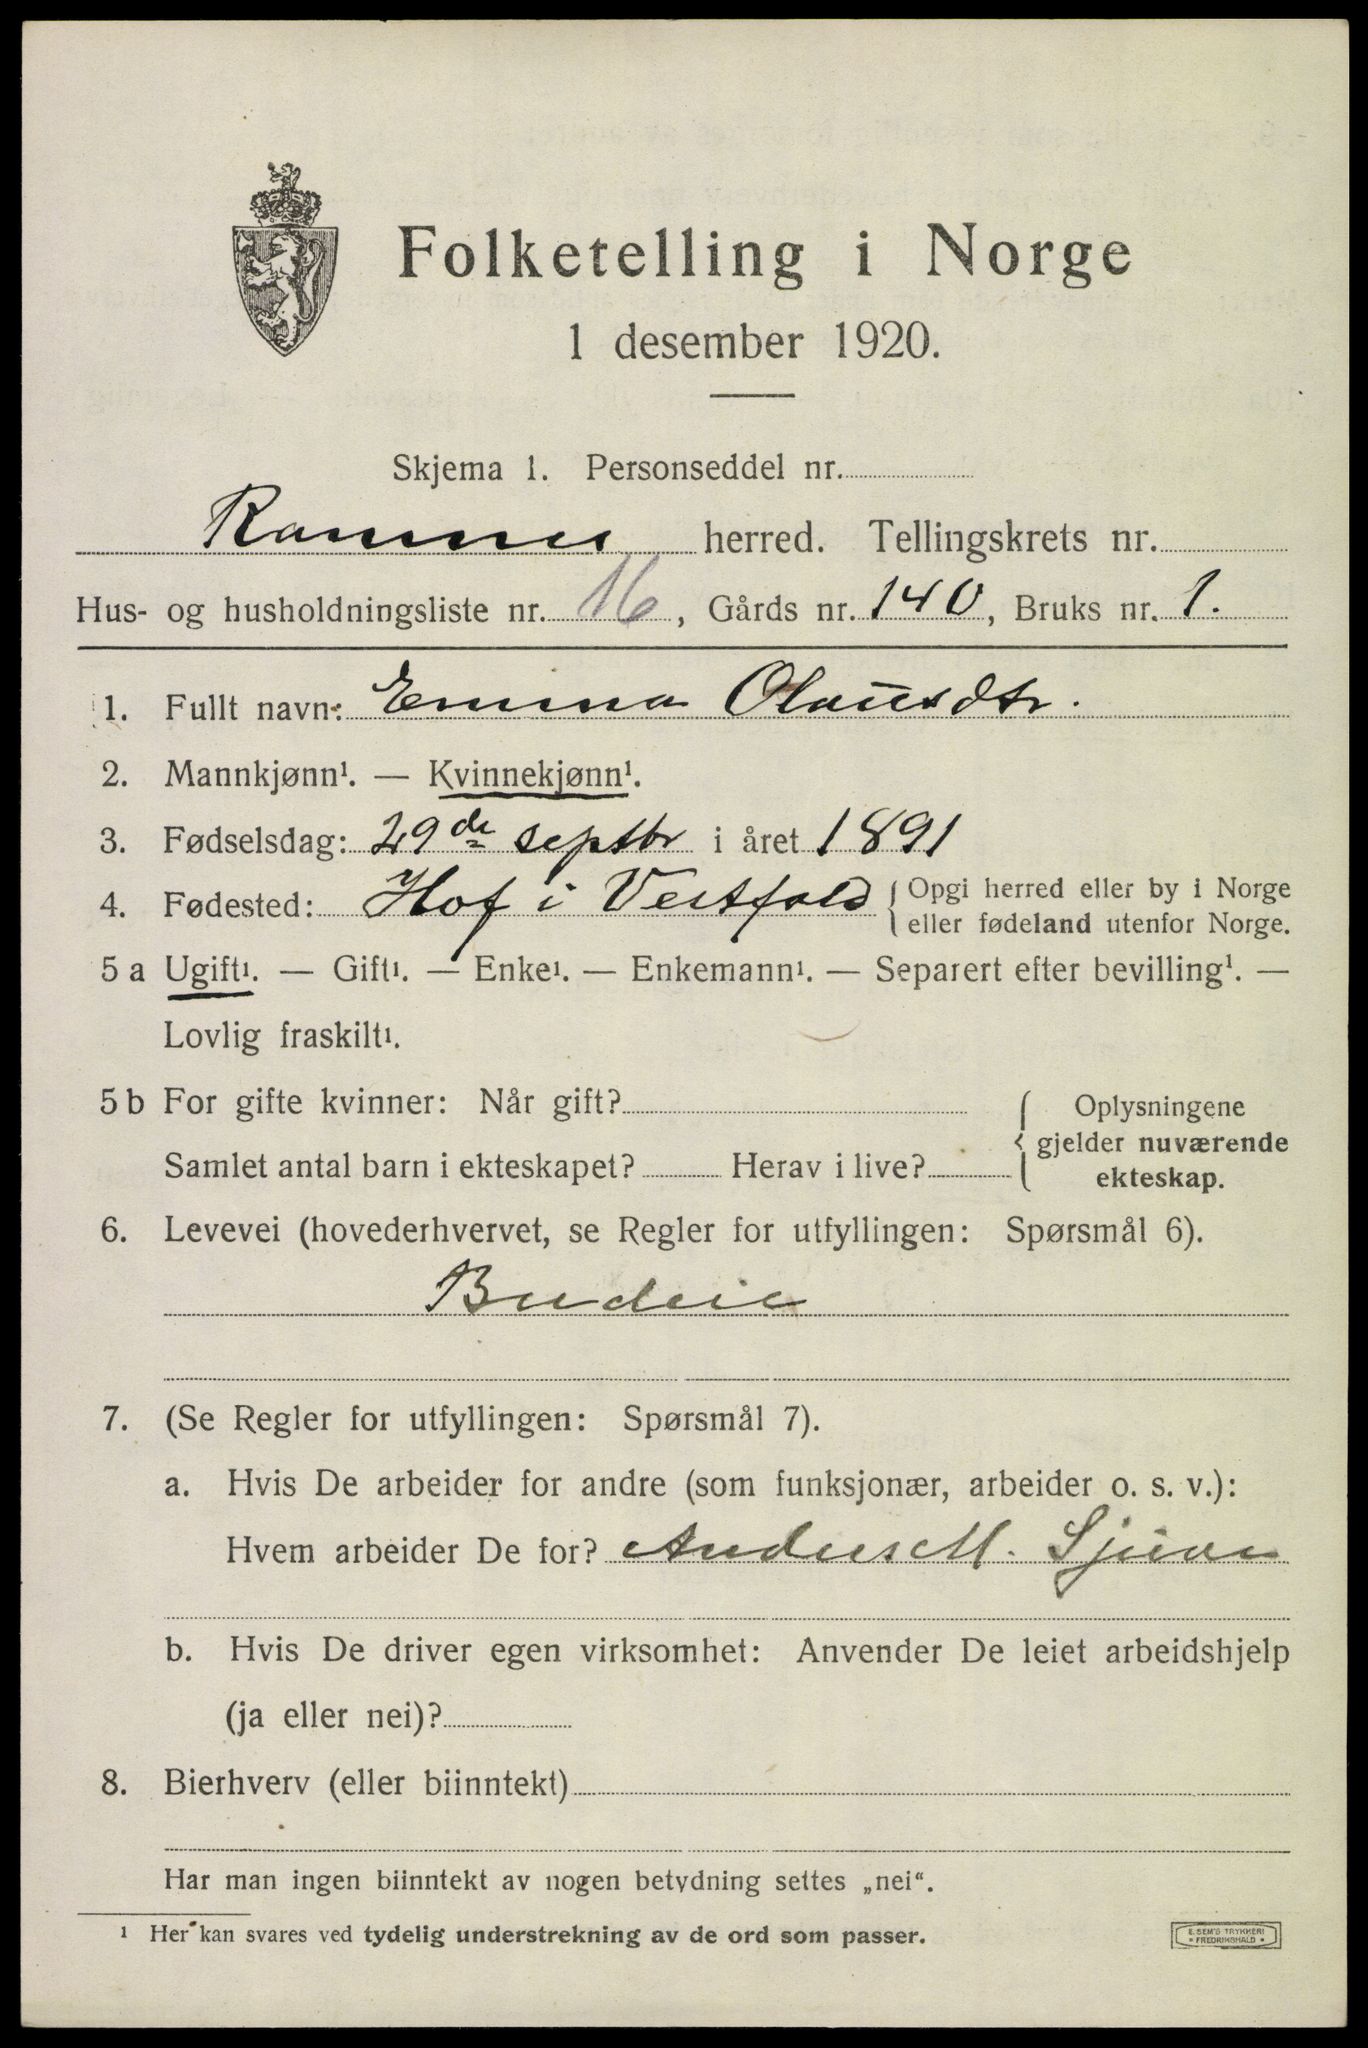 Folketelling i Norge
1 desember 1920.
Skjema 1. Personseddel nr.
Ramnes herred. Tellingskrets nr.
Hus- og husholdningsliste nr. 16, Gårds nr. 140, Bruks nr. 1.
1. Fullt navn: Emma Olausdtr.
2. Mannkjønn¹. — Kvinnekjønn¹.
3. Fødselsdag: 29de septbr i året 1891
4. Fødested: Hof i Vestfold { Opgi herred eller by i Norge
eller fødeland utenfor Norge.
5 a Ugift¹. — Gift¹. — Enke¹. — Enkemann¹. — Separert efter bevilling¹. —
Lovlig fraskilt¹.
5 b For gifte kvinner: Når gift?
Samlet antal barn i ekteskapet? Herav i live?
{ Oplysningene
gjelder nuværende
ekteskap.
6. Levevei (hovederhvervet, se Regler for utfyllingen: Spørsmål 6).
Budeie
7. (Se Regler for utfyllingen: Spørsmål 7).
a. Hvis De arbeider for andre (som funksjonær, arbeider o. s. v.):
Hvem arbeider De for? Anders M.
b. Hvis De driver egen virksomhet: Anvender De leiet arbeidshjelp
(ja eller nei)?
8. Bierhverv (eller biinntekt)
Har man ingen biinntekt av nogen betydning settes „nei“.
¹ Her kan svares ved tydelig understrekning av de ord som passer.
E. SEM'S TRYKKERI
• FREDRIKSHALD •